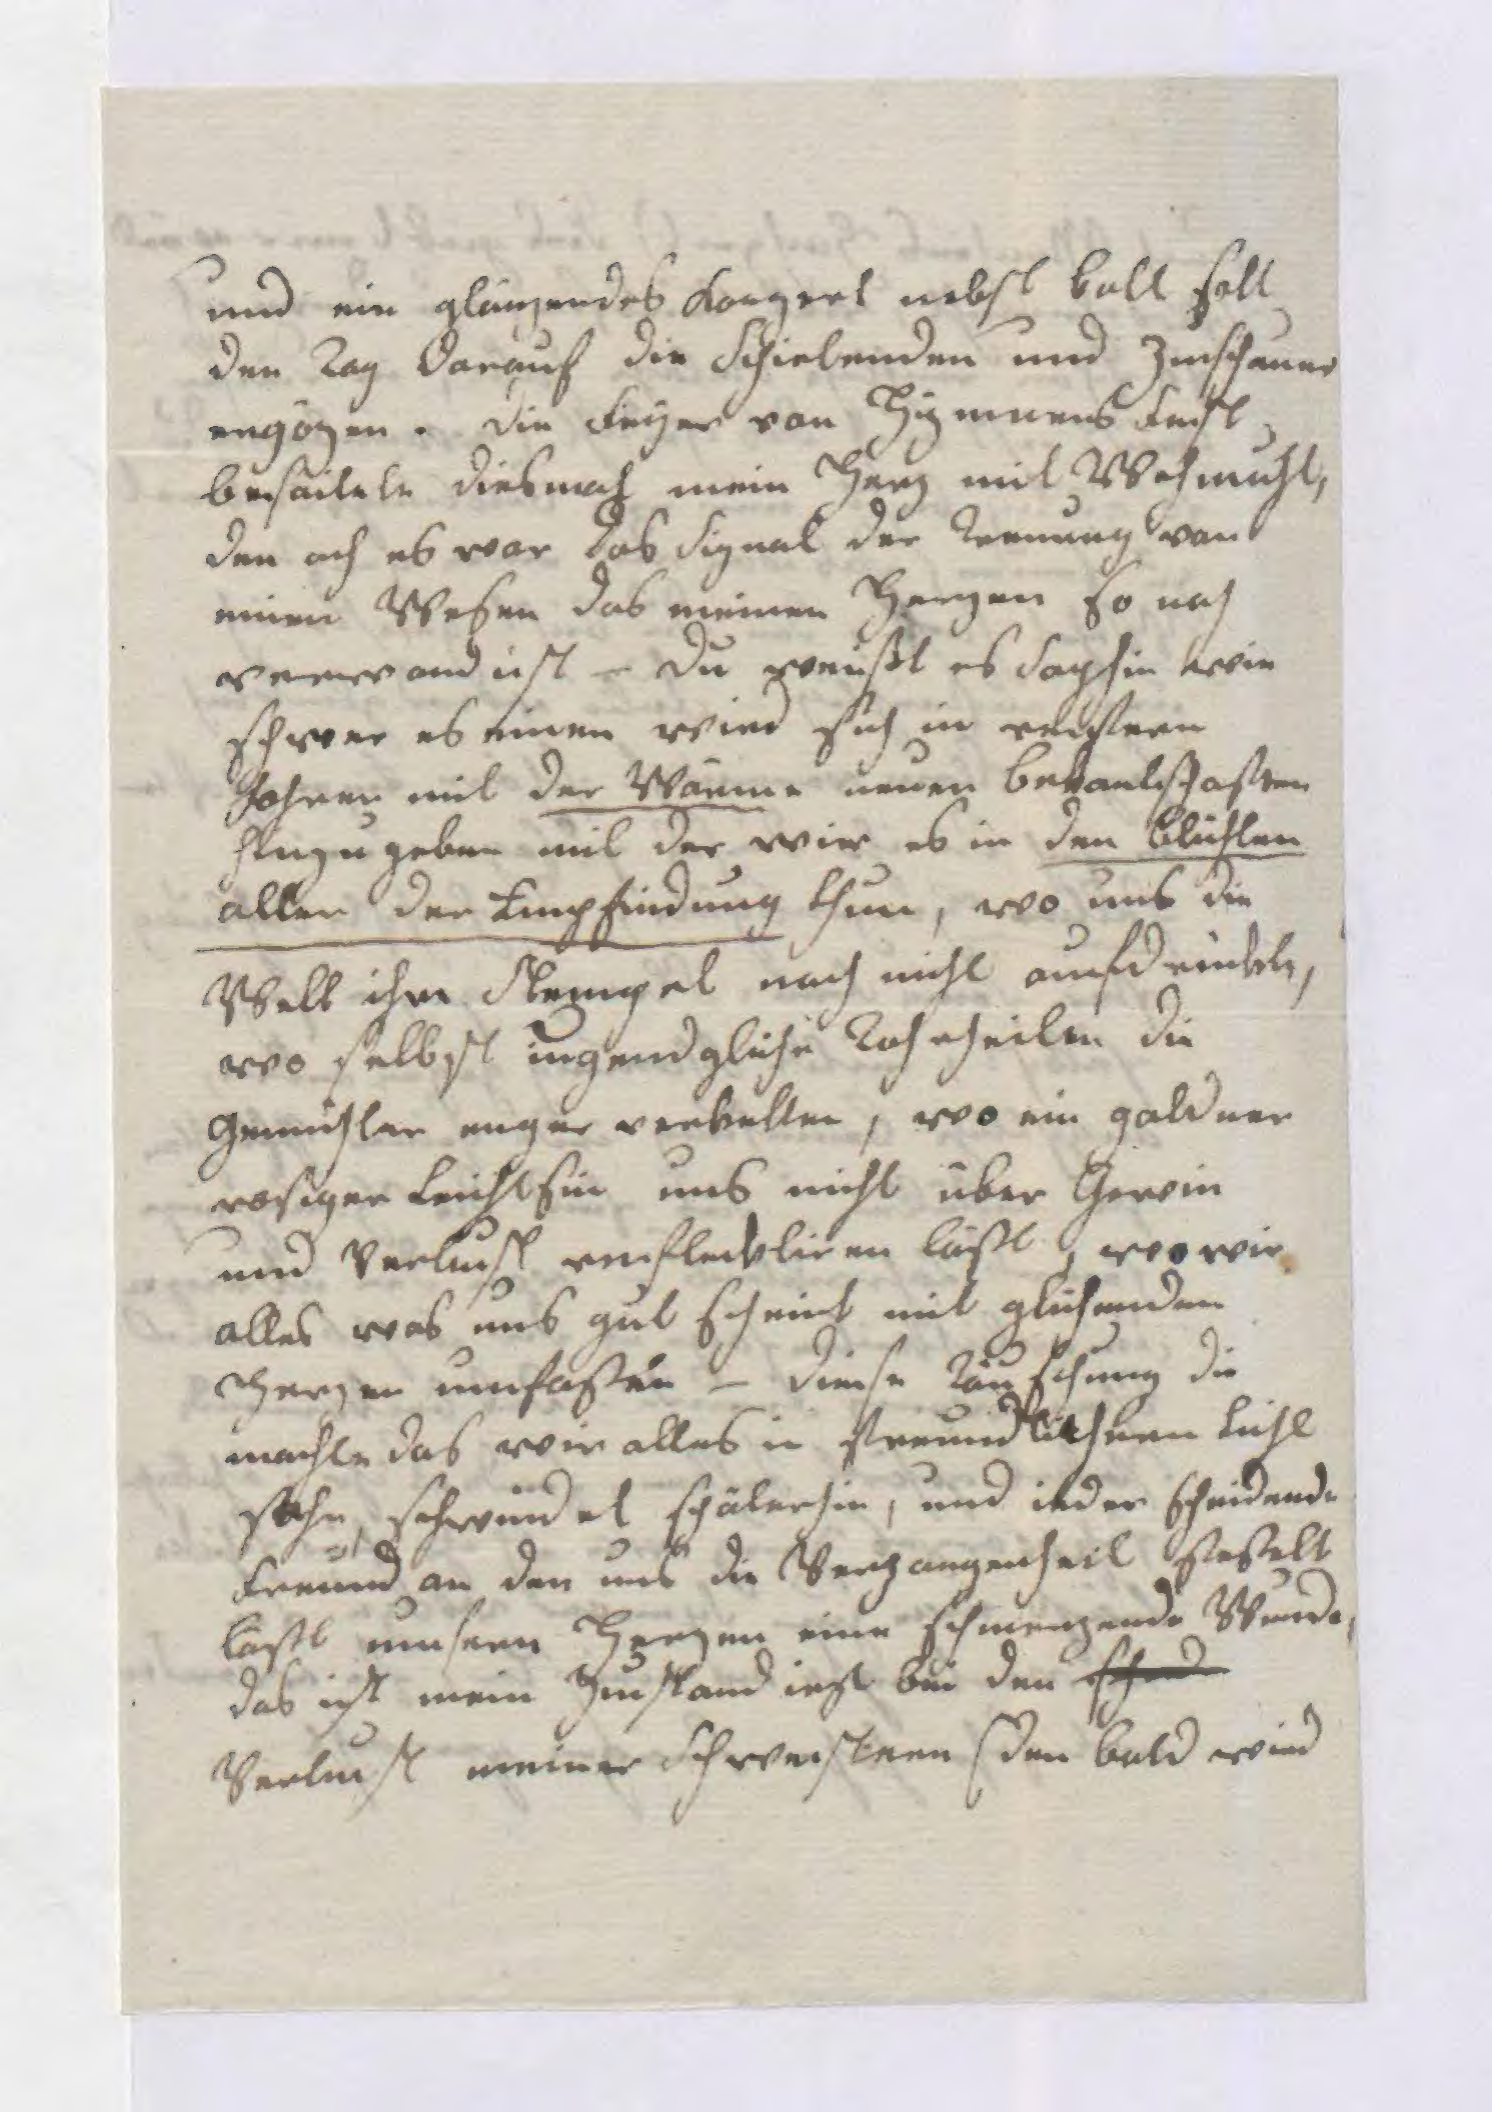 und ein glänzendes Konzert nebst ball soll
den Tag darauf die Schielenden und Zuschauer
ergözen. die Feyer von Hymens Fest
besaitete diesmahl mein Herz mit Wehmuht,
den ach es war das Signal der Trenung von
einen Wesen das meinen Herzen so nah
verwand ist – du weißt es Sophie wie
schwer es einen wird sich in reifern
Jahren mit der Wärme neuen bekantschaften
hinzugeben mit der wir es in den blühten
alter der Empfindung thun, wo uns die
Welt ihre Stempel noch nicht aufdrückte,
wo selbst iugendgliche Tohrheiten die
Gemühter enger verketten, wo ein goldner
rosiger Leichtsin uns nicht über Gewin
und Verlust reflecktiren läßt, wo wir
alles was uns gut scheint mit glühenden
Herzen umfaßen – diese Täuschung die
machte das wir alles in freundlichern Licht
sehn, schwindet späterhin, und ieder scheidende
Freund an den uns die Vergangenheit feßelt
läßt unsern Herzen eine schmerzende Wunde,
das ist mein Zustand iezt bei den
Verlust meiner Schwestern den bald wird